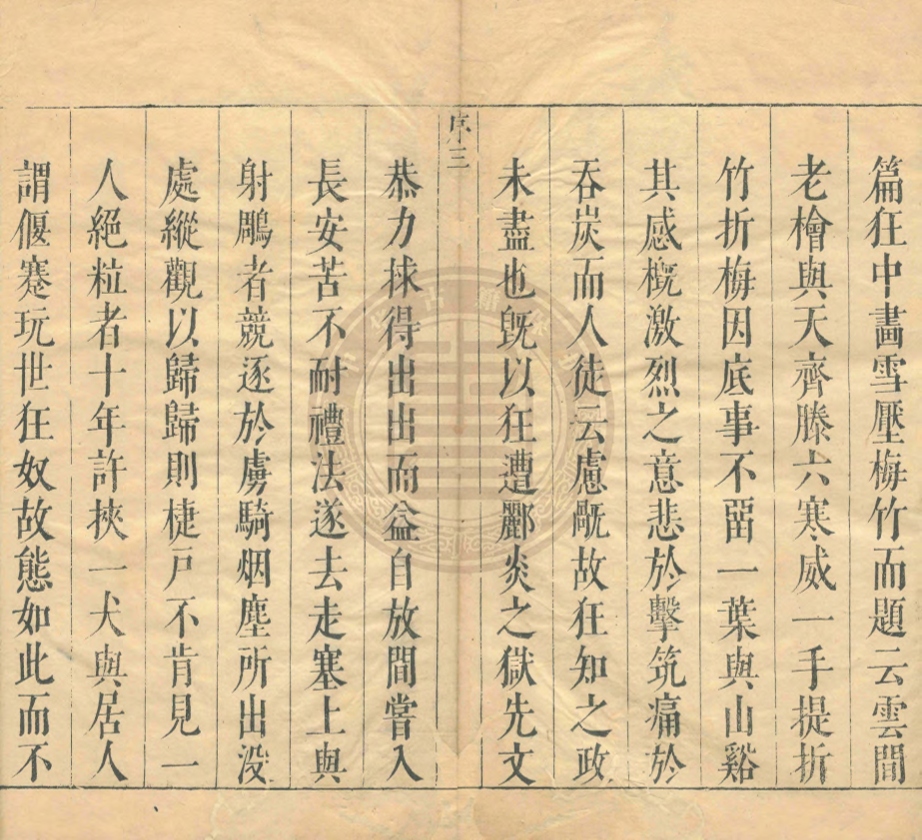 篇狂中畵雪壓梅竹而題云雲間
老檜與天齊滕六寒威一手提折
竹折梅因底事不畱一葉與山谿
其感槪激烈之意悲於擊筑痛於
吞炭而人徒云慮戤故狂知之政
未盡也旣以狂遭酈炎之獄先文
序三
恭力捄得出出而益自放間嘗入
長安苦不耐禮法遂去走塞上與
射鵰者競逐於虜騎烟塵所出没
處縱觀以歸歸則揵戸不肯見一
人絕粒者十年許挾一犬與居人
謂偃蹇玩世狂奴故態如此而不